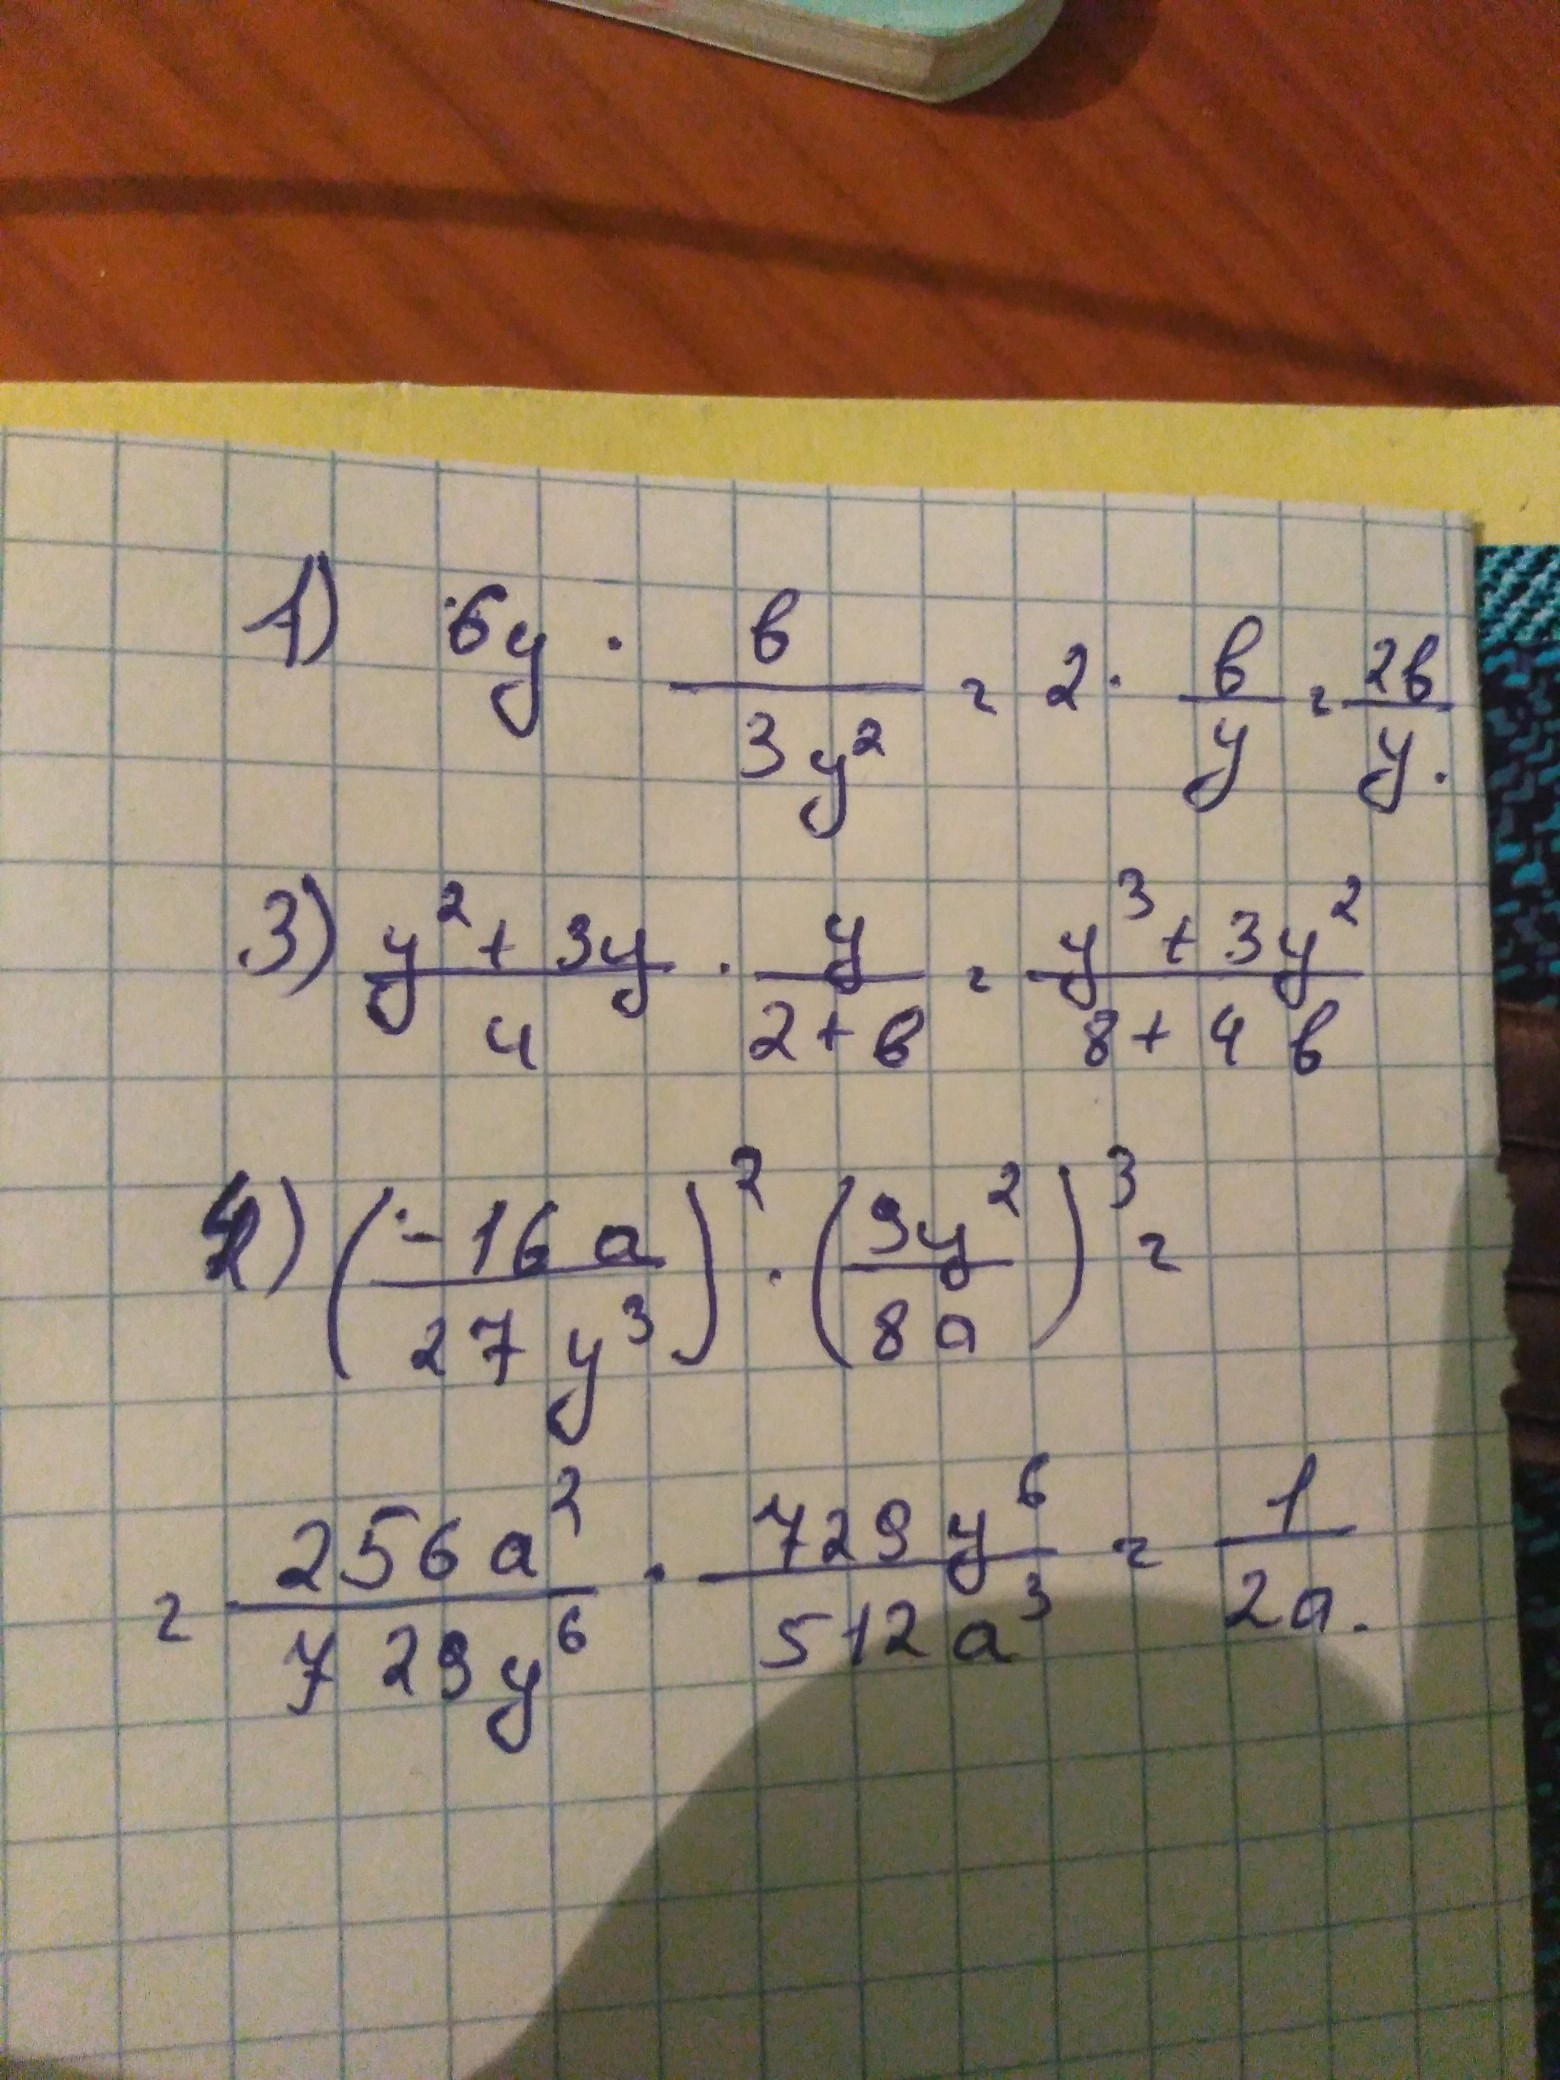 1) 6y · в/(3y²) = 2 · в/y = 2в/y.
3) (y² + 3y)/4 · y/(2 + в) = (y³ + 3y²)/(8 + 4в)
4) (-16a/(27y³))² · (9y²/(8a))³ =
= 256a²/(729y⁶) · 729y⁶/(512a³) = 1/(2a).